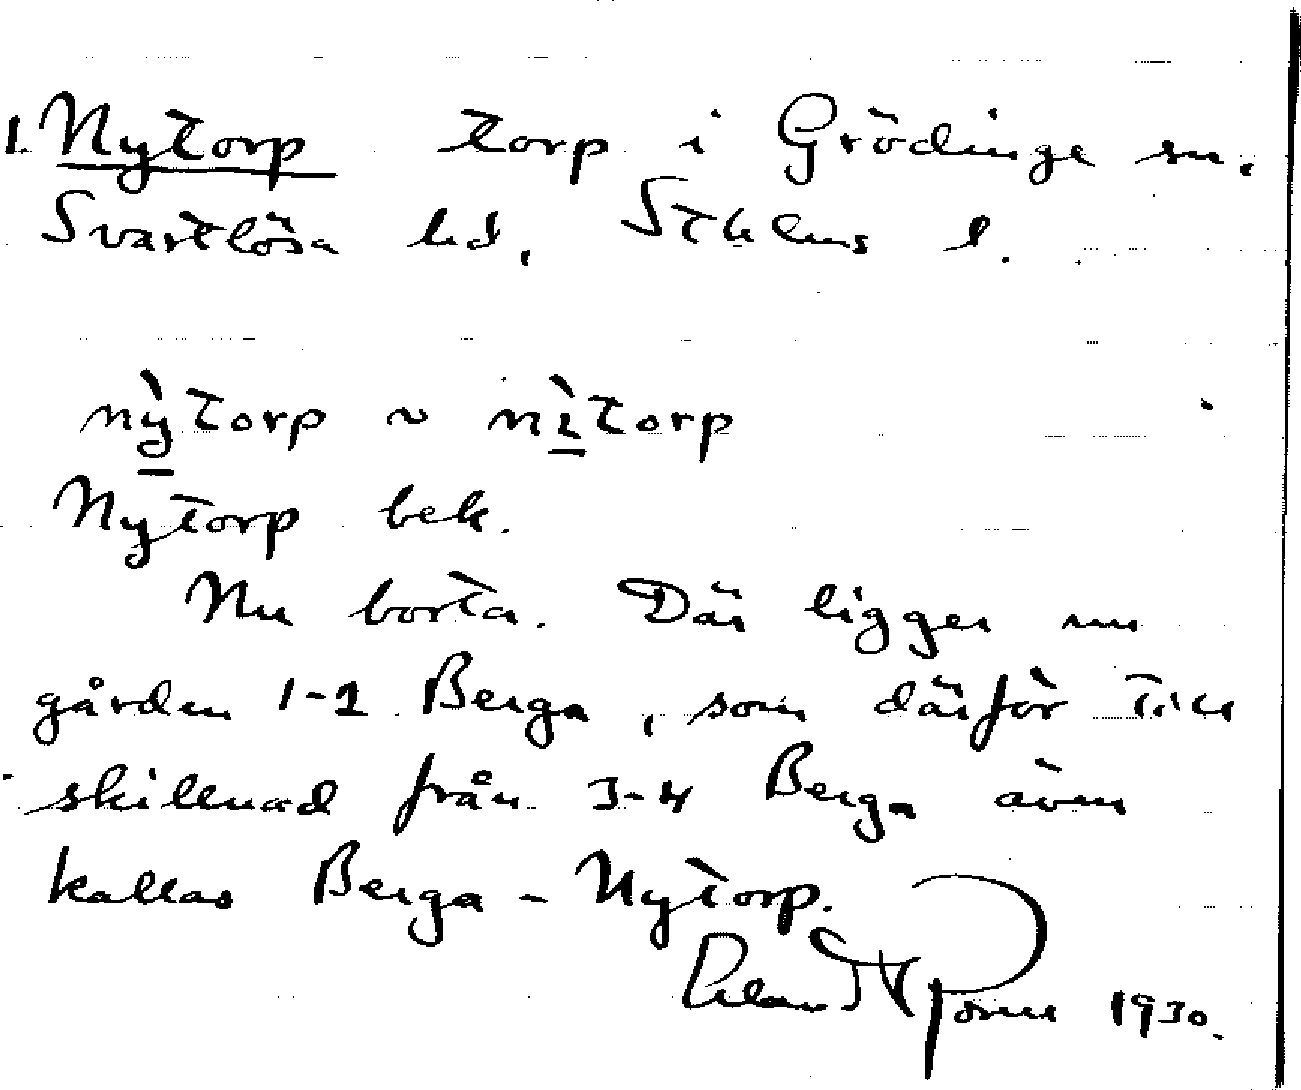 1. Nytorp torp i Grödinge sn.
Svartlösa hd, Sthlms l.
nỳ̱torp ~ nì̱torp
Nytorp bek.
Nu borta. Där ligger nu
gården 1-2 Berga, som därför till
skillnad från 3-4 Berga även
kallas Berga-Nytorp.
1930.